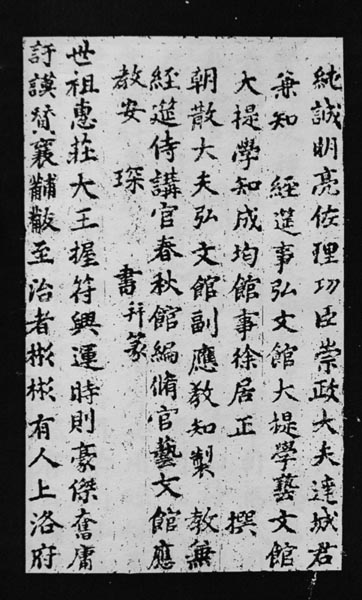 純誠明亮佐理功臣崇政大夫達城君
兼知 經筵事弘文館大提學藝文館
大提學知成均館事徐居正 撰
朝散大夫弘文館副應敎知製 敎兼
經筵侍講官春秋館編脩官藝文館應
敎安 琛 書并篆
世祖惠莊大王握符興運時則豪傑奮庸
訏謨贊襄黼黻至治者彬彬有人上洛府